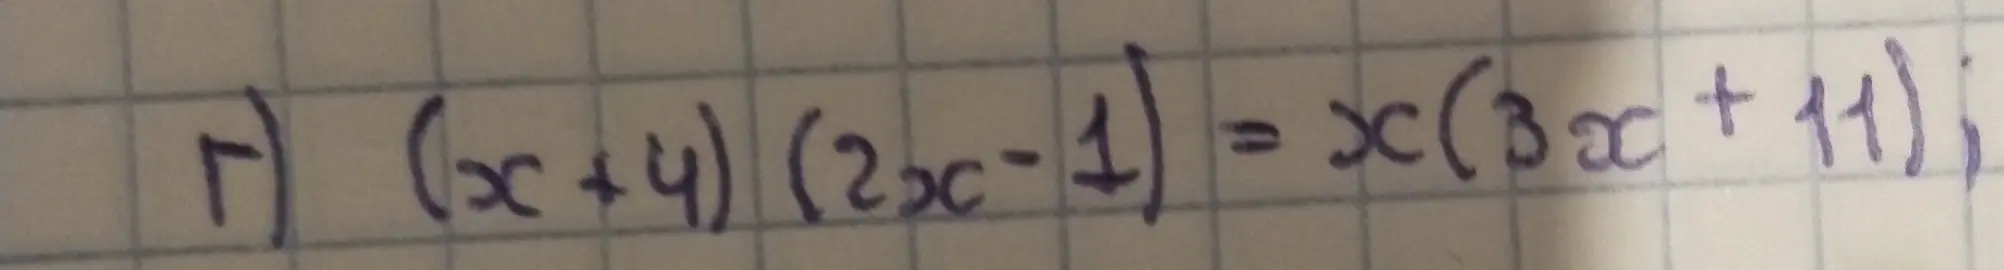 г) (x + 4) (2x - 1) = x(3x + 11);